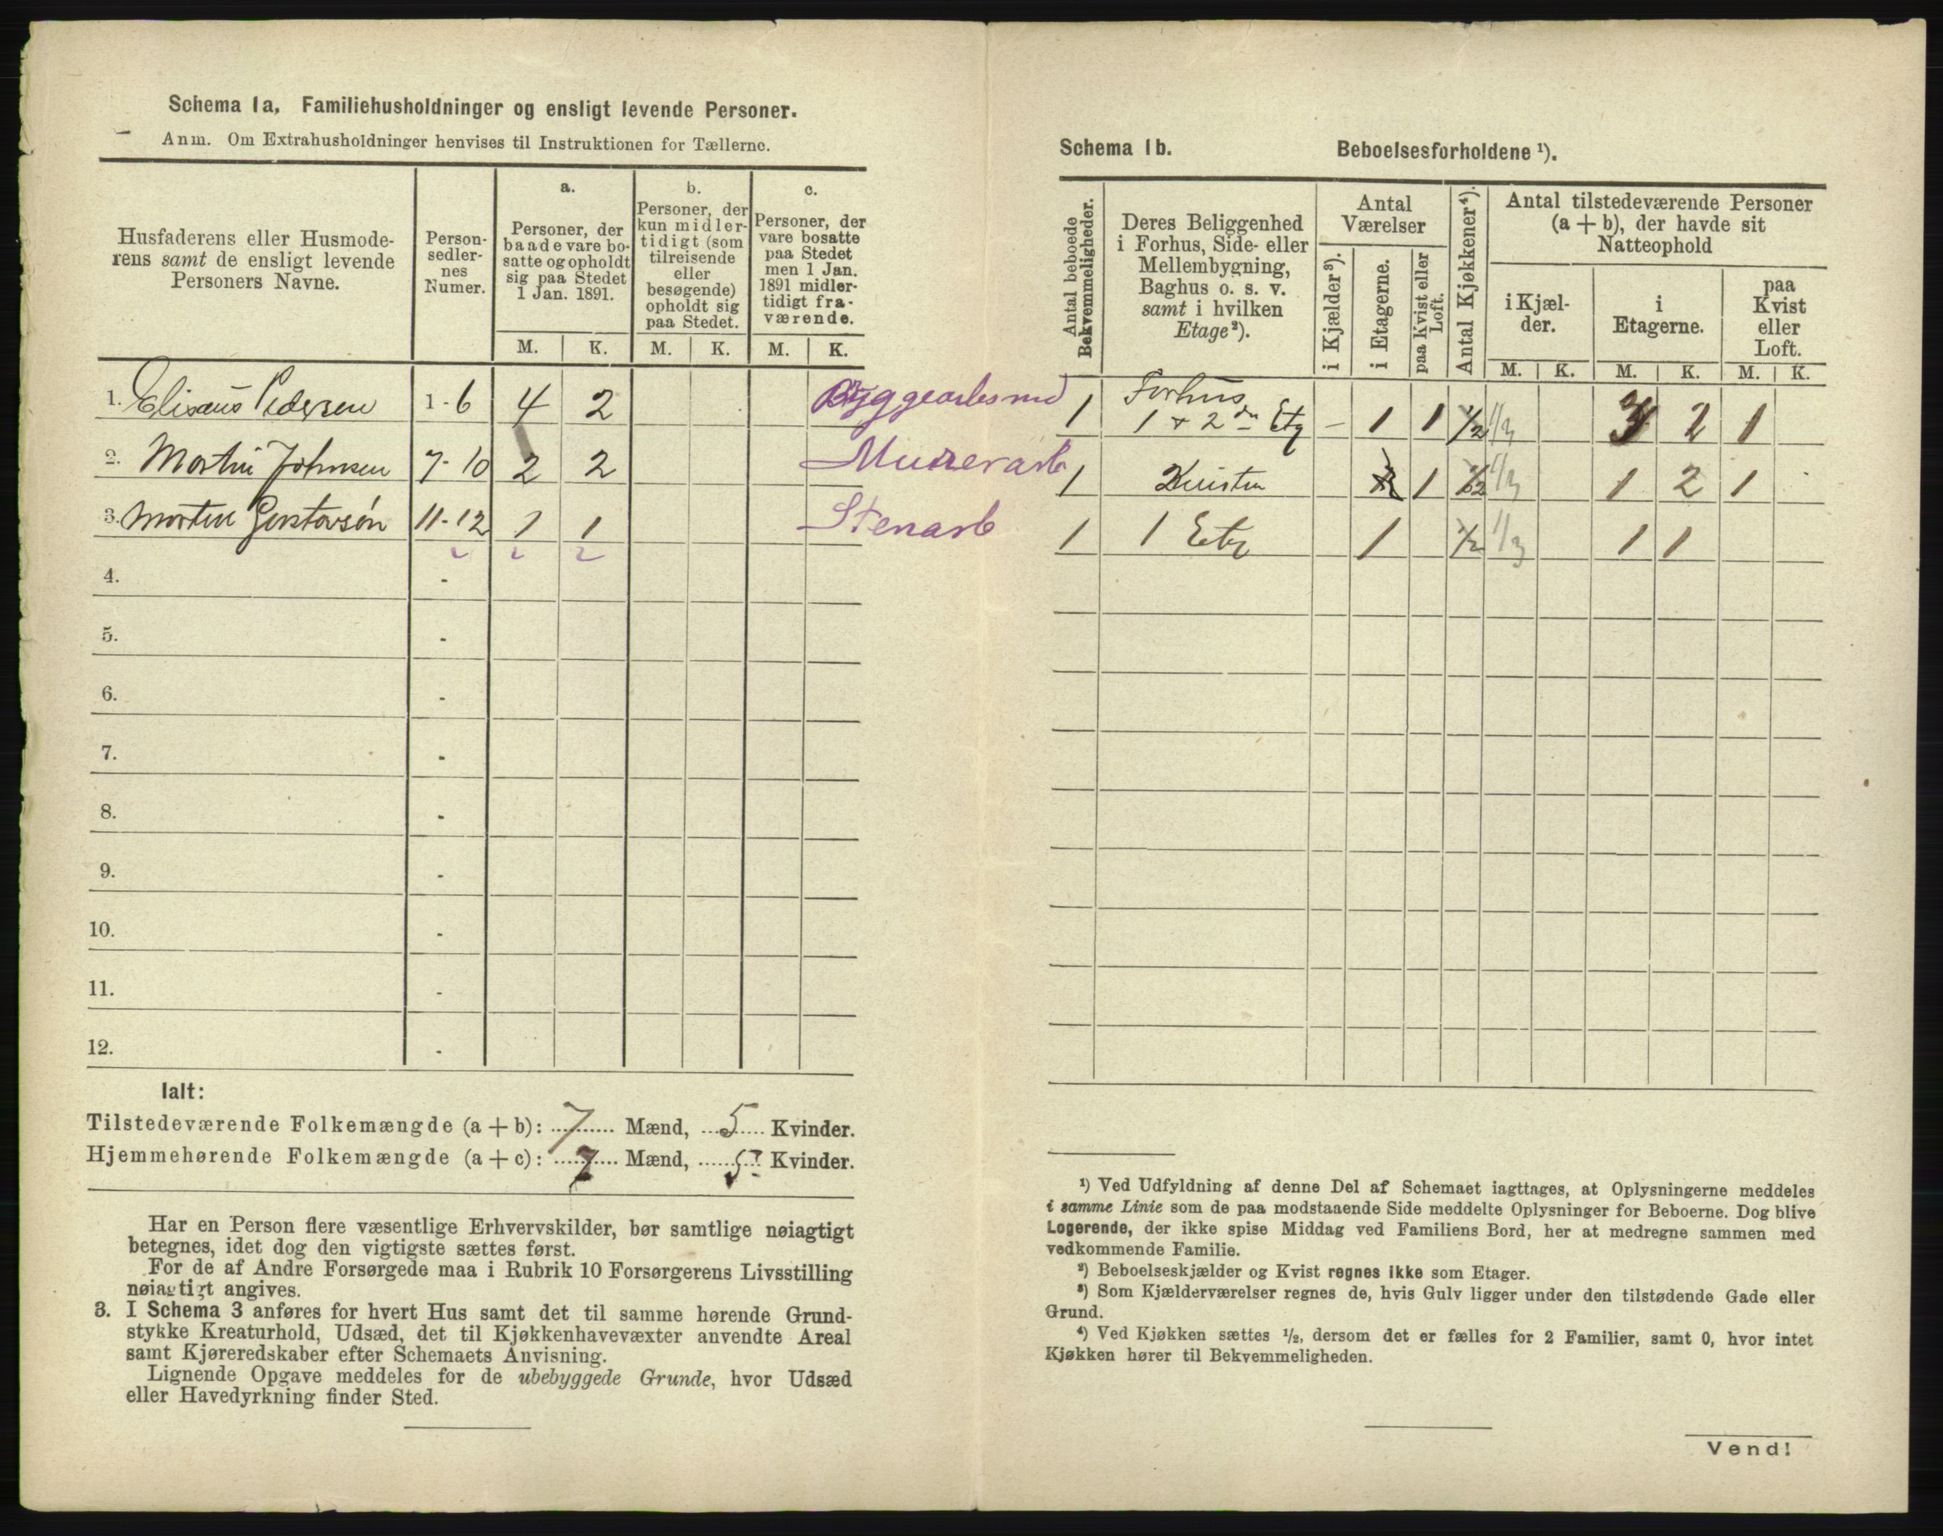 Schema 1a. Familiehusholdninger og ensligt levende Personer.
Anm. Om Extrahusholdninger henvises til Instruktionen for Tællerne.
Husfaderens eller Husmode-
rens samt de ensligt levende
Personers Navne.
Person-
sedler-
nes
Numer.
a.
Personer, der
baade vare bo-
satte og opholdt
sig paa Stedet
1 Jan. 1891.
b.
Personer, der
kun midler-
tidigt (som
tilreisende
eller
besøgende)
opholdt sig
paa Stedet.
c.
Personer, der
vare bosatte
paa Stedet
men 1 Jan.
1891 midler-
tidigt fra-
værende.
M. K. M. K. M. K.
1. Elisæus Pedersen 1-6 4 2 Byggearbsmd
2. Martin Johnsen 7-10 2 2 Murerarb
3. Morten Gustavsøn 11-12 1 1 Stenarb
4. -
5. -
6. -
7. -
8. -
9. -
10. -
11. -
12. -
Ialt:
Tilstedeværende Folkemængde (a + b): 7 Mænd, 5 Kvinder.
Hjemmehørende Folkemængde (a + c): 7 Mænd, 5 Kvinder.
Har en Person flere væsentlige Erhvervskilder, bør samtlige nøiagtigt
betegnes, idet dog den vigtigste sættes først.
For de af Andre Forsørgede maa i Rubrik 10 Forsørgerens Livsstilling
nøiagtigt angives.
3. I Schema 3 anføres for hvert Hus samt det til samme hørende Grund-
stykke Kreaturhold, Udsæd, det til Kjøkkenhavevæxter anvendte Areal
samt Kjøreredskaber efter Schemaets Anvisning.
Lignende Opgave meddeles for de ubebyggede Grunde, hvor Udsæd
eller Havedyrkning finder Sted.
Schema 1b. Beboelsesforholdene ¹).
Antal beboede
Bekvemmeligheder.
Deres Beliggenhed
i Forhus, Side- eller
Mellembygning,
Baghus o. s. v.
samt i hvilken
Etage²).
Antal
Værelser
i Kjælder³).
i Etagerne.
paa Kvist eller
Loft.
Antal Kjøkkener⁴).
Antal tilstedeværende Personer
(a + b), der havde sit
Natteophold
i Kjæl-
der.
i
Etagerne.
paa
Kvist
eller
Loft.
M. K. M. K. M. K.
Forhus
1 1 & 2den Etg - 1 1 1/2 1/3 3 2 1
1 Kvisten 1 1/2 1/3 1 2 1
1 1 Etg 1 1/2 1/3 1 1
¹) Ved Udfyldning af denne Del af Schemaet iagttages, at Oplysningerne meddeles
i samme Linie som de paa modstaaende Side meddelte Oplysninger for Beboerne. Dog blive
Logerende, der ikke spise Middag ved Familiens Bord, her at medregne sammen med
vedkommende Familie.
²) Beboelseskjælder og Kvist regnes ikke som Etager.
³) Som Kjælderværelser regnes de, hvis Gulv ligger under den tilstødende Gade eller
Grund.
⁴) Ved Kjøkken sættes ½, dersom det er fælles for 2 Familier, samt 0, hvor intet
Kjøkken hører til Bekvemmeligheden.
Vend!